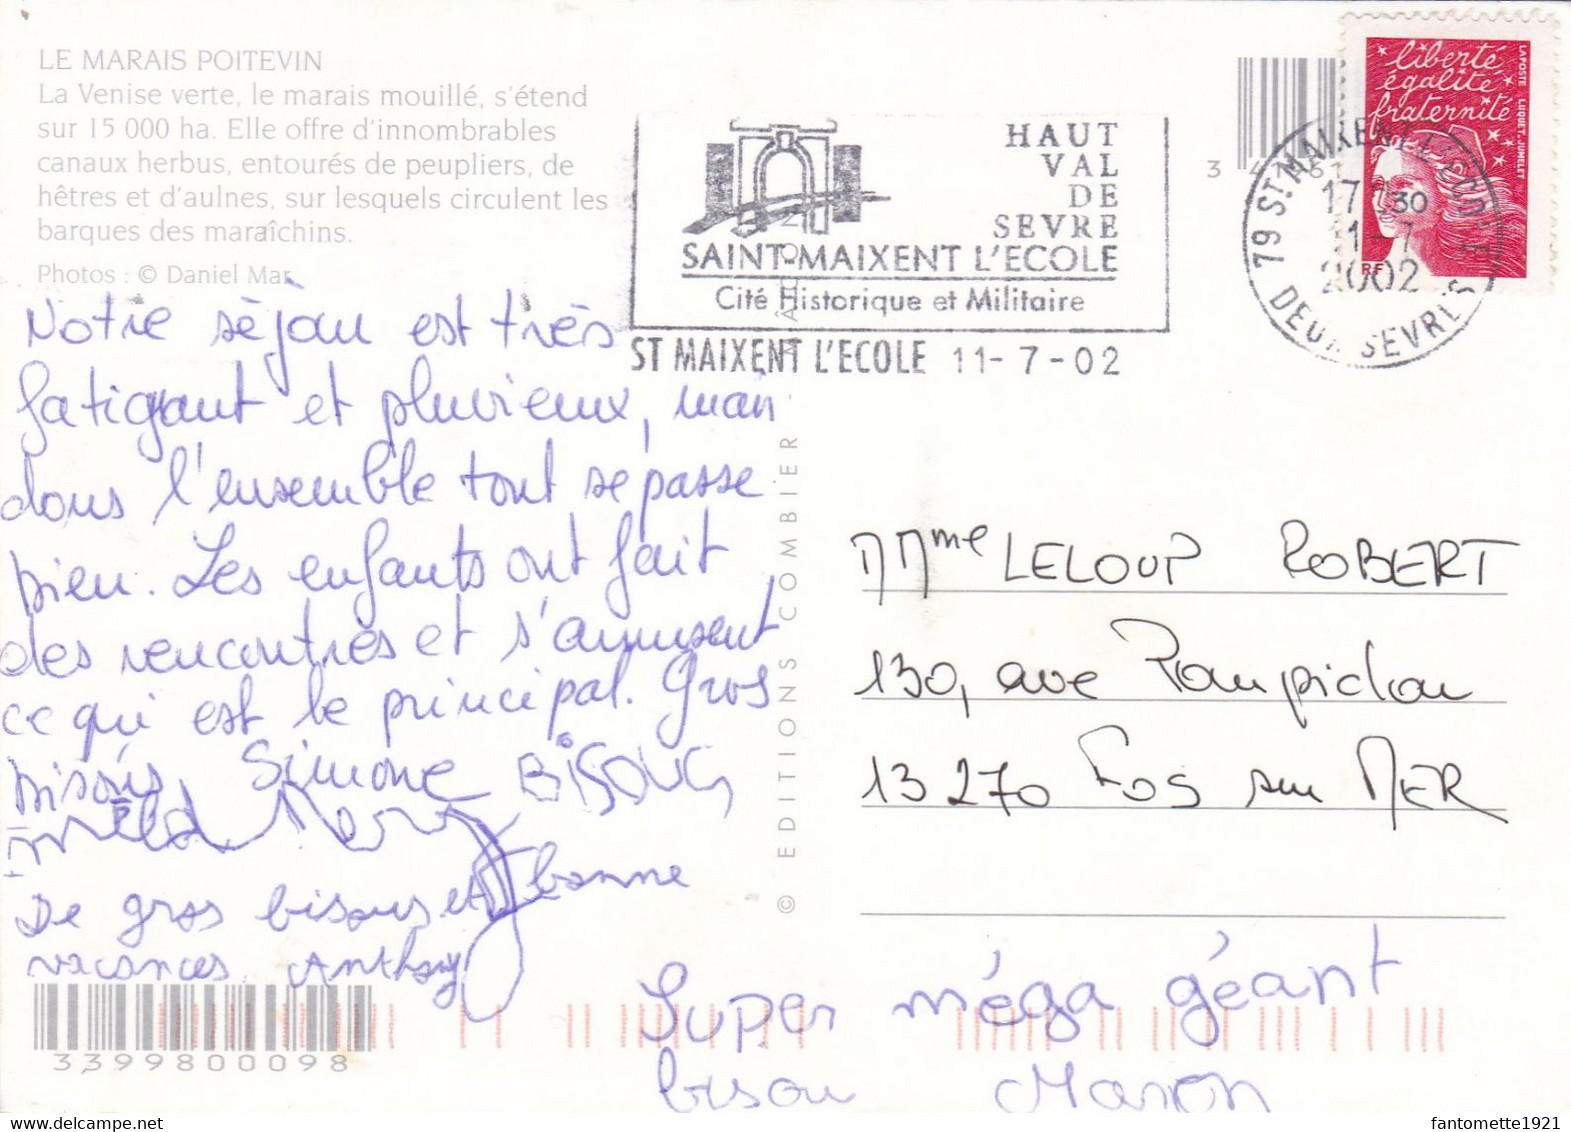 LE MARAIS POITEVIN
La Venise verte, le marais mouillé, s'étend
sur 15 000 ha. Elle offre d'innombrables
canaux herbus, entourés de peupliers, de
hêtres et d'aulnes, sur lesquels circulent les
barques des maraîchins.
Photos : © Daniel Mar
Notre séjour est très
fatigant et pluvieux, mais
dans l'ensemble tout se passe
bien. Les enfants ont fait
des rencontres et s'amusent
ce qui est le principal. Gros
bisous Simone BISOUS
De gros bisous et bonne
vacances Anthony
3399800098
© EDITIONS COMBIER MÂCON
HAUT
VAL
DE
SEVRE
SAINT MAIXENT L'ECOLE
Cité Historique et Militaire
ST MAIXENT L'ECOLE 11-7-02
liberté
égalité
fraternité
LA POSTE LUQUET. JUMELET
RF
79 ST. MAIXENT L'ECOLE
17 30
11-7
2002
DEUX SEVRES
MMme LELOUP ROBERT
130, ave Pompidou
13270 Fos sur MER
Super méga géant
bisou Manon
fantomette1921